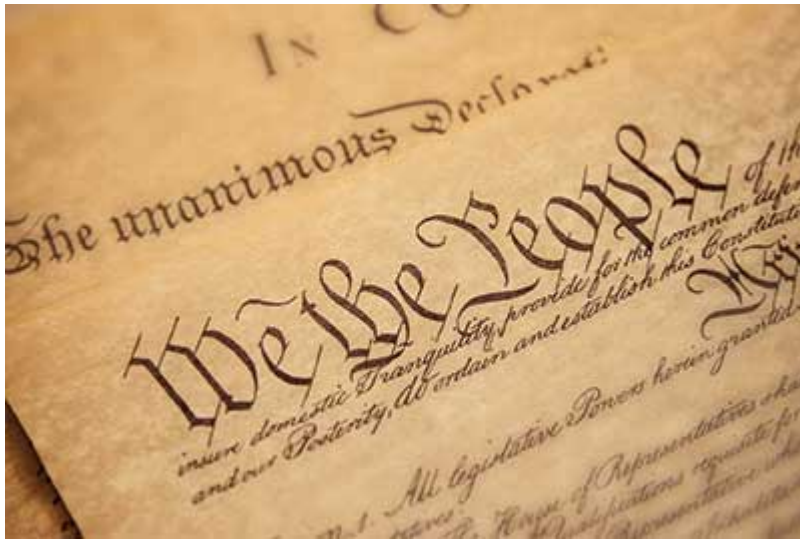 IN CO
The unanimous Declara
We the People of the
insure domestic Tranquility, provide for the common defen
and our Posterity, do ordain and establish this Constitutio
All legislative Powers herein granted
House of Representatives sha
Qualifications requisite for
Representative whi